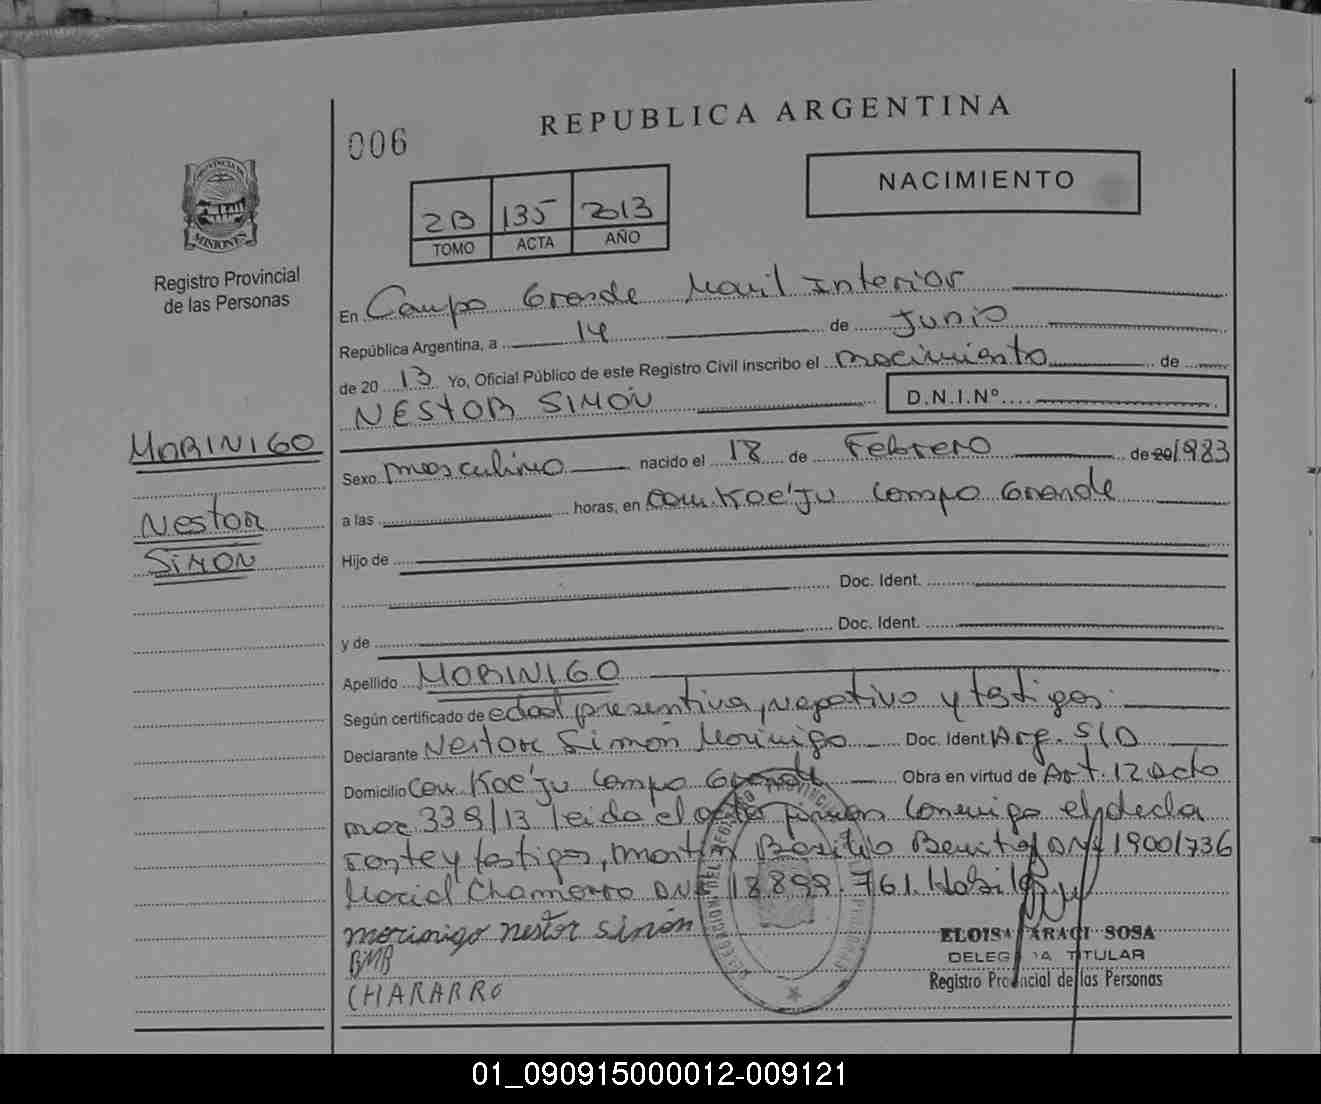 REPUBLICA ARGENTINA
006
NACIMIENTO
2B 135 2013
TOMO ACTA AÑO
PROVINCIA DE
MISIONES
Registro Provincial
de las Personas
En Campo Grande Movil Interior
República Argentina, a 14 de Junio
de 20 13 Yo, Oficial Público de este Registro Civil inscribo el nacimiento de
NESTOR SIMÓN D.N.I.Nº
MORINIGO
Nestor
SIMÓN
Sexo masculino nacido el 18 de Febrero de 20 1983
a las horas, en Com. Koe'Ju Campo Grande
Hijo de
Doc. Ident.
y de Doc. Ident.
Apellido MORINIGO
Según certificado de edad presentiva, negativo y testigos.
Declarante Nestor Simón Morinigo Doc. Ident. Arg. S/D
Domicilio Com. Koe'Ju Campo Grande Obra en virtud de Art. 12 Dcto
nac 339/13 leida el acta firman conmigo el decla
rante y testigos, Basilio DNI 19001736
Marcial Chamorro DNI 18.899.761. Habil
morinigo nestor simón
BMB
CHARARRO
ELOISA ARACI SOSA
DELEGADA TITULAR
Registro Provincial de las Personas
01_090915000012-009121